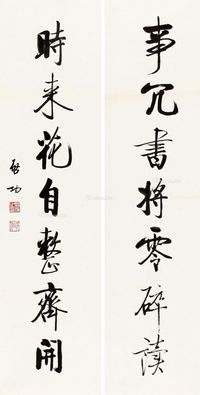 事冗書將零碎讀
時来花自整齊開
啟功